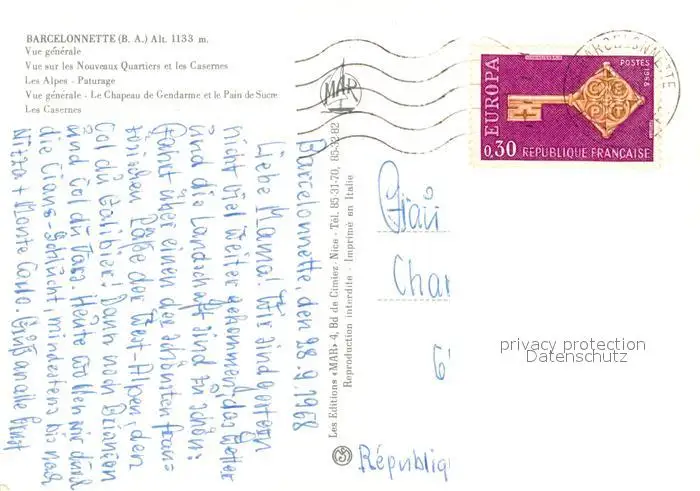 BARCELONNETTE (B. A.) Alt. 1133 m.
Vue générale
Vue sur les Nouveaux Quartiers et les Casernes
Les Alpes - Paturage
Vue générale - Le Chapeau de Gendarme et le Pain de Sucre
Les Casernes
MAR
BARCELONNETTE
EUROPA
POSTES
1968
0,30 RÉPUBLIQUE FRANÇAISE
Barcelonnette, den 28.9.1968
Liebe Mama! Wir sind gestern
nicht viel weiter gekommen, das Wetter
und die Landschaft sind zu schön:
Fahrt über einen der schönsten fran=
zösischen Pässe der West-Alpen, den
Col du Galibier! Dann noch Briançon
und Col du Vars. Heute wollen wir durch
die Cians-Schlucht, mindestens bis nach
Nizza + Monte Carlo. Gruß an alle
Les Editions «MAR» 4, Bd de Cimiez - Nice - Tél. 85-31-70, 85-32-82
Reproduction interdite - Imprimé en Italie
Char
6
Républiq
privacy protection
Datenschutz